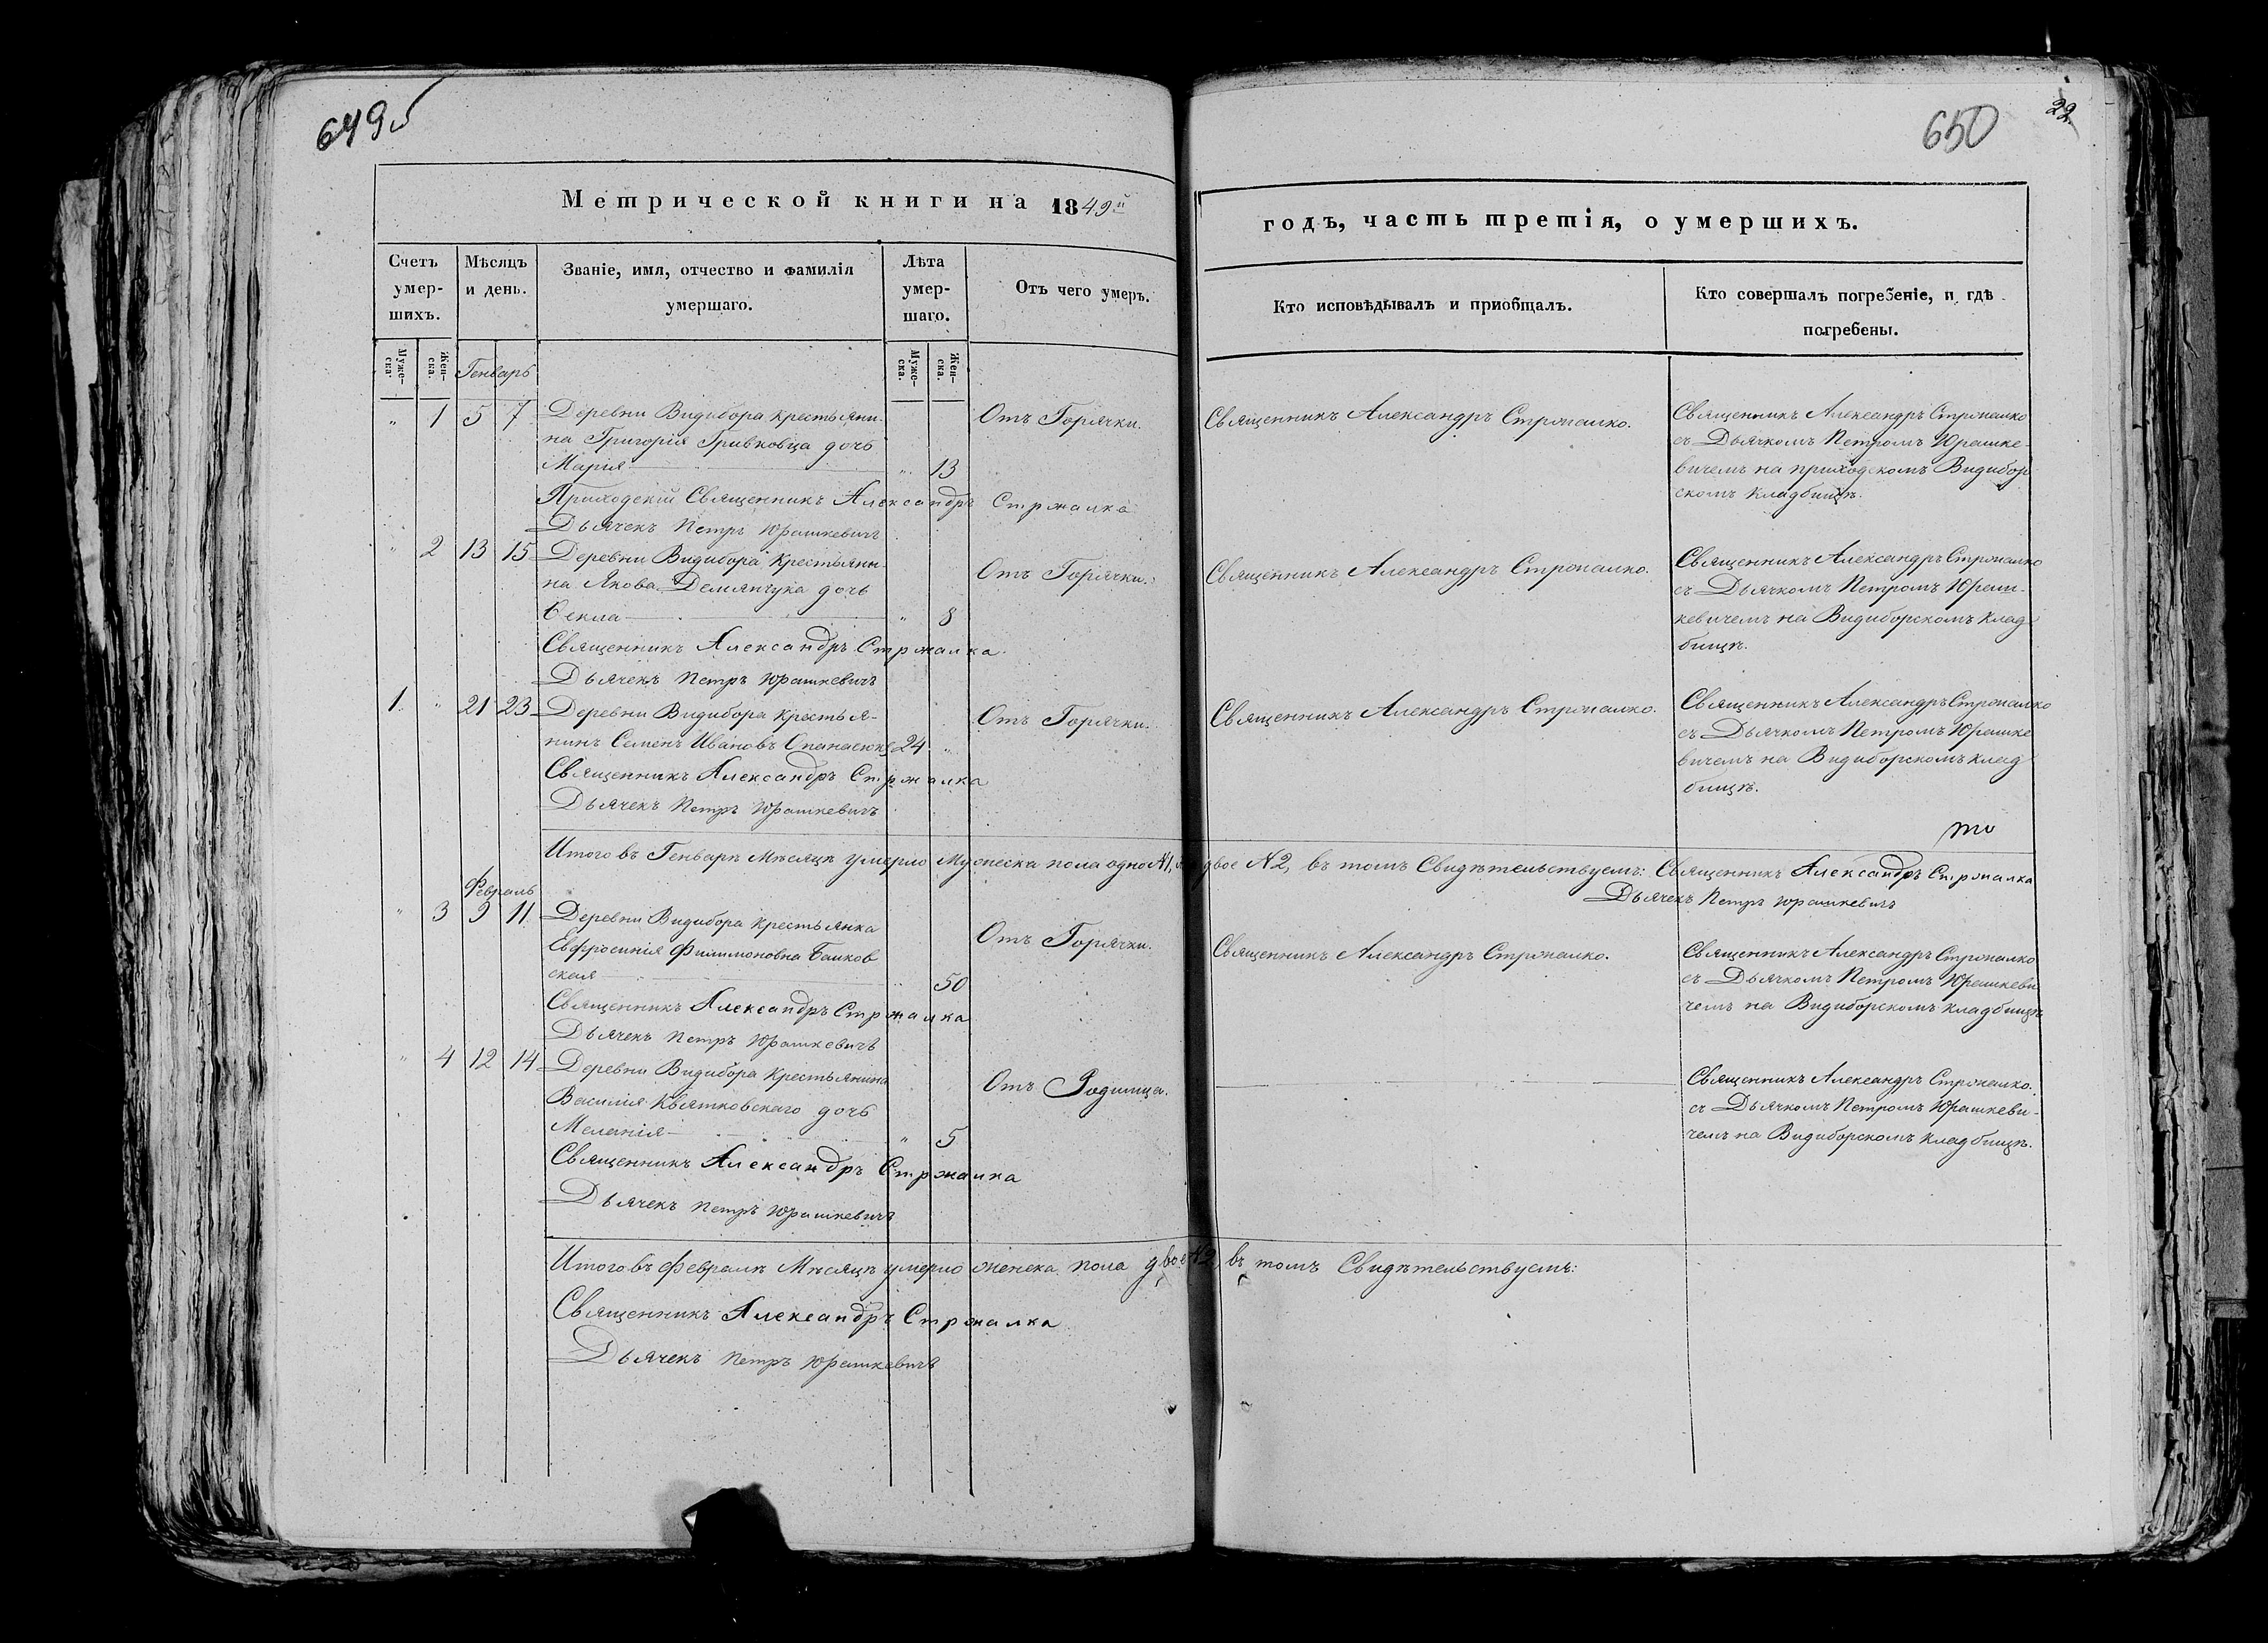 649
650
22
Метрической книги на 1849й
годъ, часть третія, о умершихъ.
Счетъ умер-шихъ.
Мѣсяцъ и день.
Званіе, имя, отчество и фамилія
умершаго.
Лѣта умер-шаго.
Отъ чего умеръ.
Кто исповѣдывалъ и приобщалъ.
Кто совершалъ погребеніе, и гдѣ
погребены.
Муже-ска.
Жен-ска.
Генварь
Муже-ска.
Жен-ска.
" 1 5 7 Деревни Видибора крестьяни-
на Григорія Гривковца дочь
Марія " 13
Отъ Горячки.
Священникъ Александръ Стржалко.
Священникъ Александръ Стржалко
съ Дьячкомъ Петромъ Юрашке-
вичемъ на приходскомъ Видибор
скомъ кладбищѣ.
Приходскій Священникъ Александръ Стржалка
Дьячекъ Петръ Юрашкевичъ
" 2 13 15 Деревни Видибора крестьяни-
на Якова Демянчука дочь
Ѳекла " 8
Отъ Горячки.
Священникъ Александръ Стржалко.
Священникъ Александръ Стржалко
съ Дьячкомъ Петромъ Юраш-
кевичемъ на Видиборскомъ клад
бищѣ.
Священникъ Александръ Стржалка.
Дьячекъ Петръ Юрашкевичъ
1 " 21 23 Деревни Видибора крестья-
нинъ Семенъ Ивановъ Опанасюкъ 24 "
Отъ Горячки.
Священникъ Александръ Стржалко.
Священникъ Александръ Стржалко
съ Дьячкомъ Петромъ Юрашке
вичемъ на Видиборскомъ клад
бищѣ.
Священникъ Александръ Стржалка
Дьячекъ Петръ Юрашкевичъ
Итого въ Генварѣ Мѣсяцѣ умерло Мужеска пола одно №1, двое №2, въ томъ Свидѣтельствуемъ: Священникъ Александръ Стржалка
Дьячекъ Петръ Юрашкевичъ
Февраль
" 3 9 11 Деревни Видибора крестьянка
Евфросинія Филимоновна Банков
ская " 50
Отъ Горячки.
Священникъ Александръ Стржалко.
Священникъ Александръ Стржалко
съ Дьячкомъ Петромъ Юрашкеви
чемъ на Видиборскомъ кладбищѣ
Священникъ Александръ Стржалка
Дьячекъ Петръ Юрашкевичъ
" 4 12 14 Деревни Видибора крестьянина
Василія Квятковскаго дочь
Меланія " 5
Отъ Родимца.
Священникъ Александръ Стржалко.
съ Дьячкомъ Петромъ Юрашкеви-
чемъ на Видиборскомъ кладбищѣ.
Священникъ Александръ Стржалка
Дьячекъ Петръ Юрашкевичъ
Итого въ Февралѣ Мѣсяцѣ умерло женска пола двое №2 въ томъ Свидѣтельствуемъ:
Священникъ Александръ Стржалка
Дьячекъ Петръ Юрашкевичъ